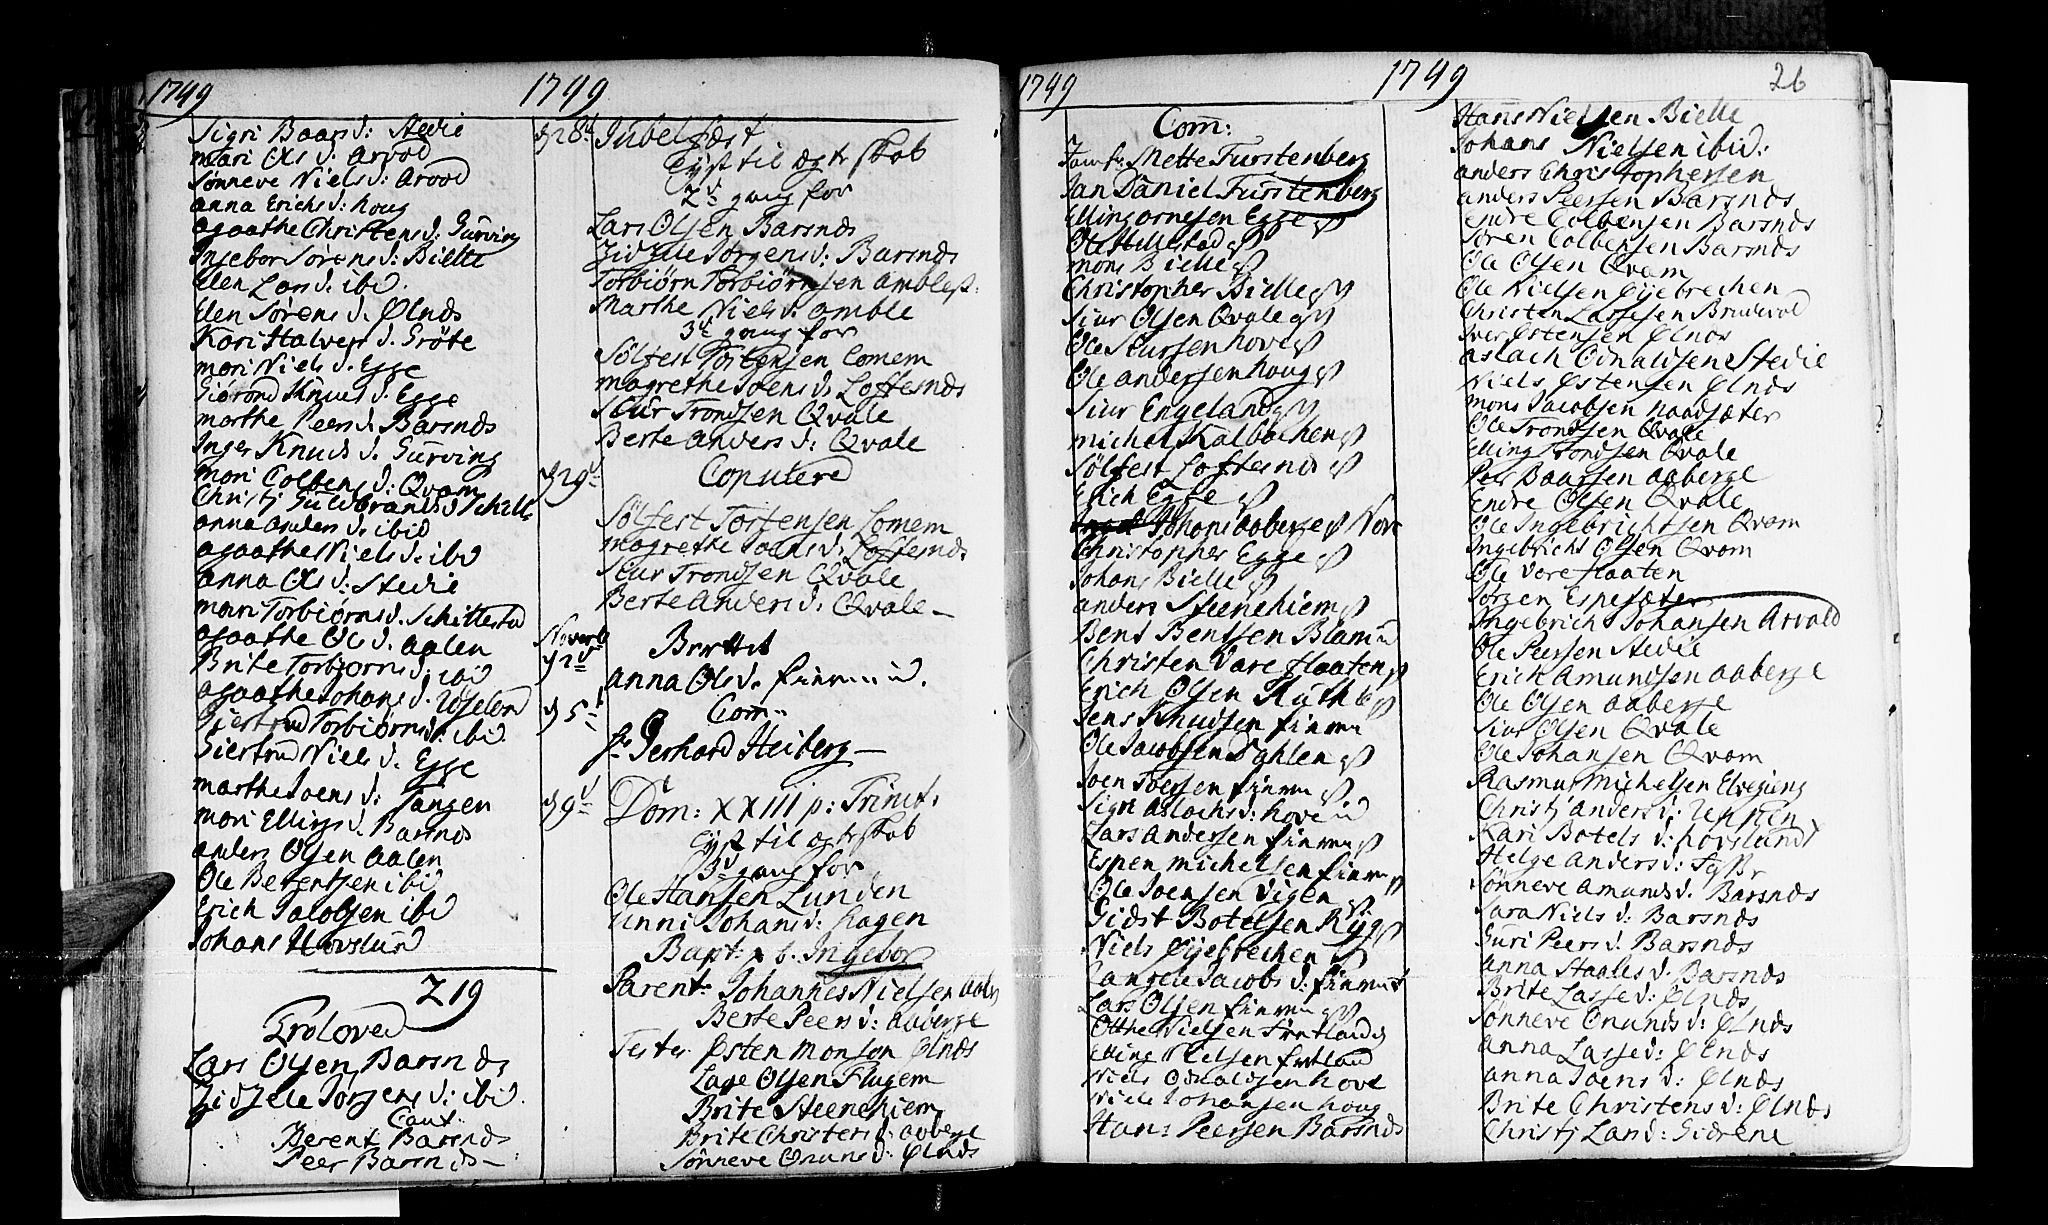 1749
1749
Sigri Baars d: Stedie
mari Ols d: Arvod
Sønneve Niels d: Arvod
anna Erichs d: houg
agaathe Christens d. Gurving
Ingebor Sørens d: Bielle
Elen Lars d: ibid.
Elen Sørens d. Ølnds
Kari Halvers d. Grøte
mari Niels d. Egge
Giørond Knuds d. Egge
marthe Peers d. Barsnds
Inger Knuds d. Gurving
mari Colbens d: Qvam
Christj Guldbrands d
anna anders d. ibid
agaathe Niels d. ibd
anna Ols d: Stedie
mari Torbiørns d. Schillestad
agaathe Ols d. aalen
Brite Torbiørns d. ibid
agaathe Johans d.
Giertrud Torbiørns d. ibid.
Giertrud Niels d. Egge
marthe Joens d: Tangen
mari Ellings d. Barsnds
anders Olsen aalen
Ole Berentsen ibid
Erich Jacobsen ibd
Johans Hovslund
219
Troloved
Lars Olsen Barsnds
Zidzele Jørgens d: ibid.
Caut.
Berent Barsnds
Peer Barsnds
d 28d Jubelfæst
Lyst til ægteskab
2d gang for
Lars Olsen Barsnds
Zidzele Jørgens d: Barsnds
Torbiørn Torbiørnsen amble
Marthe Niels d: amble
3d gang for
Sølfest Torstensen Lomem
magrethe Joens d. Loftesnds
Siur Trondsen Qvale
Berte anders d: Qvale
d 29d Coputered
Sølfest Torstensen Lomem
magrethe Joens d. Loftesnds
Siur Trondsen Qvale
Berte anders d. Qvale
Novemb
d 2d Berettet
anna Ols d.
d 5d Com:
hr Gerhard Heiberg
d 9d Dom: XXIII p: Trinit:
Lyst til ægteskab
3d gang for
Ole Hansen Lunden
Unni Johans d: hagen
Bapt: b. Ingebor
Parent: Johannes Nielsen aab
Berte Peers d: aaberge
Testes Østen Monsøn Ølnds
Lars Olsen Flugem
Brite Steenehiem
Brite Christens d: aaberge
Sønneve Onuns d: Ølnds
1749
1749
26
Com:
Jomfr: Mette Furstenberg
Jan Daniel Furstenberg
Elling ornesen Egge
Ole Hillestad
mons Bielle
Christopher Bielle
Siur Olsen Qvale
Ole Siursen hove
Ole andersen houg
Siur Engeland
michel Kalbachen
Sølfest Loftesnds
Erich Egge
Johans aaberge
Christopher Egge
Johans Bielle
anders Steenehiem
Bent Bentsen
Christen Vareflaaten
Erich Olsen
Jens Knudsen
Ole Jacobsen Dahlen
Joen Joensen
Sigri aslachs d: hove
Lars andersen
Espen michelsen
Ole Joensen Vigen
Botelsen
Niels Øijebrechen
Jacobs d:
Lars Olsen
Otthe Nielsen Fretland
Elling Nielsen fretland
Niels Odnaldsen hove
Niels Johansen houg
Hans Peersen Barsnds
Hans Nielsen Bielle
Johans Nielsen ibid:
anders Christophersen
anders Peersen Barsnds
Endre Colbensen Barsnds
Søren Colbensen Barsnds
Ole Olsen Qvam
Ole Nielsen Øijebrechen
Christen Lassesen Bruderol
Iver Østensen Ølnds
aslach Odnaldsen Stedie
Niels Østensen Ølnds
mons Jacobsen Naadsæter
Ole Trondsen Qvale
Elling Trondsen Qvale
Peer Baarsen aaberge
Endre Olsen Qvale
Ole Ingebrichtsen Qvam
Ingebricht Olsen Qvam
Ole Vareflaaten
Jørgen Espesæter
Ingebrich Johansen Arvald
Ole Peersen Stedie
Erich Amundsen aaberge
Ole Olsen aaberge
Siur Olsen Qvale
Ole Johansen Qvam
Rasmus Michelsen
Christj anders d:
Kari Botels d: hovslund
Helge anders d:
Sønneve amunds d. Barsnds
Sara Niels d: Barsnds
Guri Peers d. Barsnds
anna Staales d. Barsnds
Brite Lasse d: Ølnds
Sønneve Onunds d: Ølnds
anna Lasse d: Ølnds
anna Joens d: Ølnds
Brite Christens d: Ølnds
Christj Lars d: